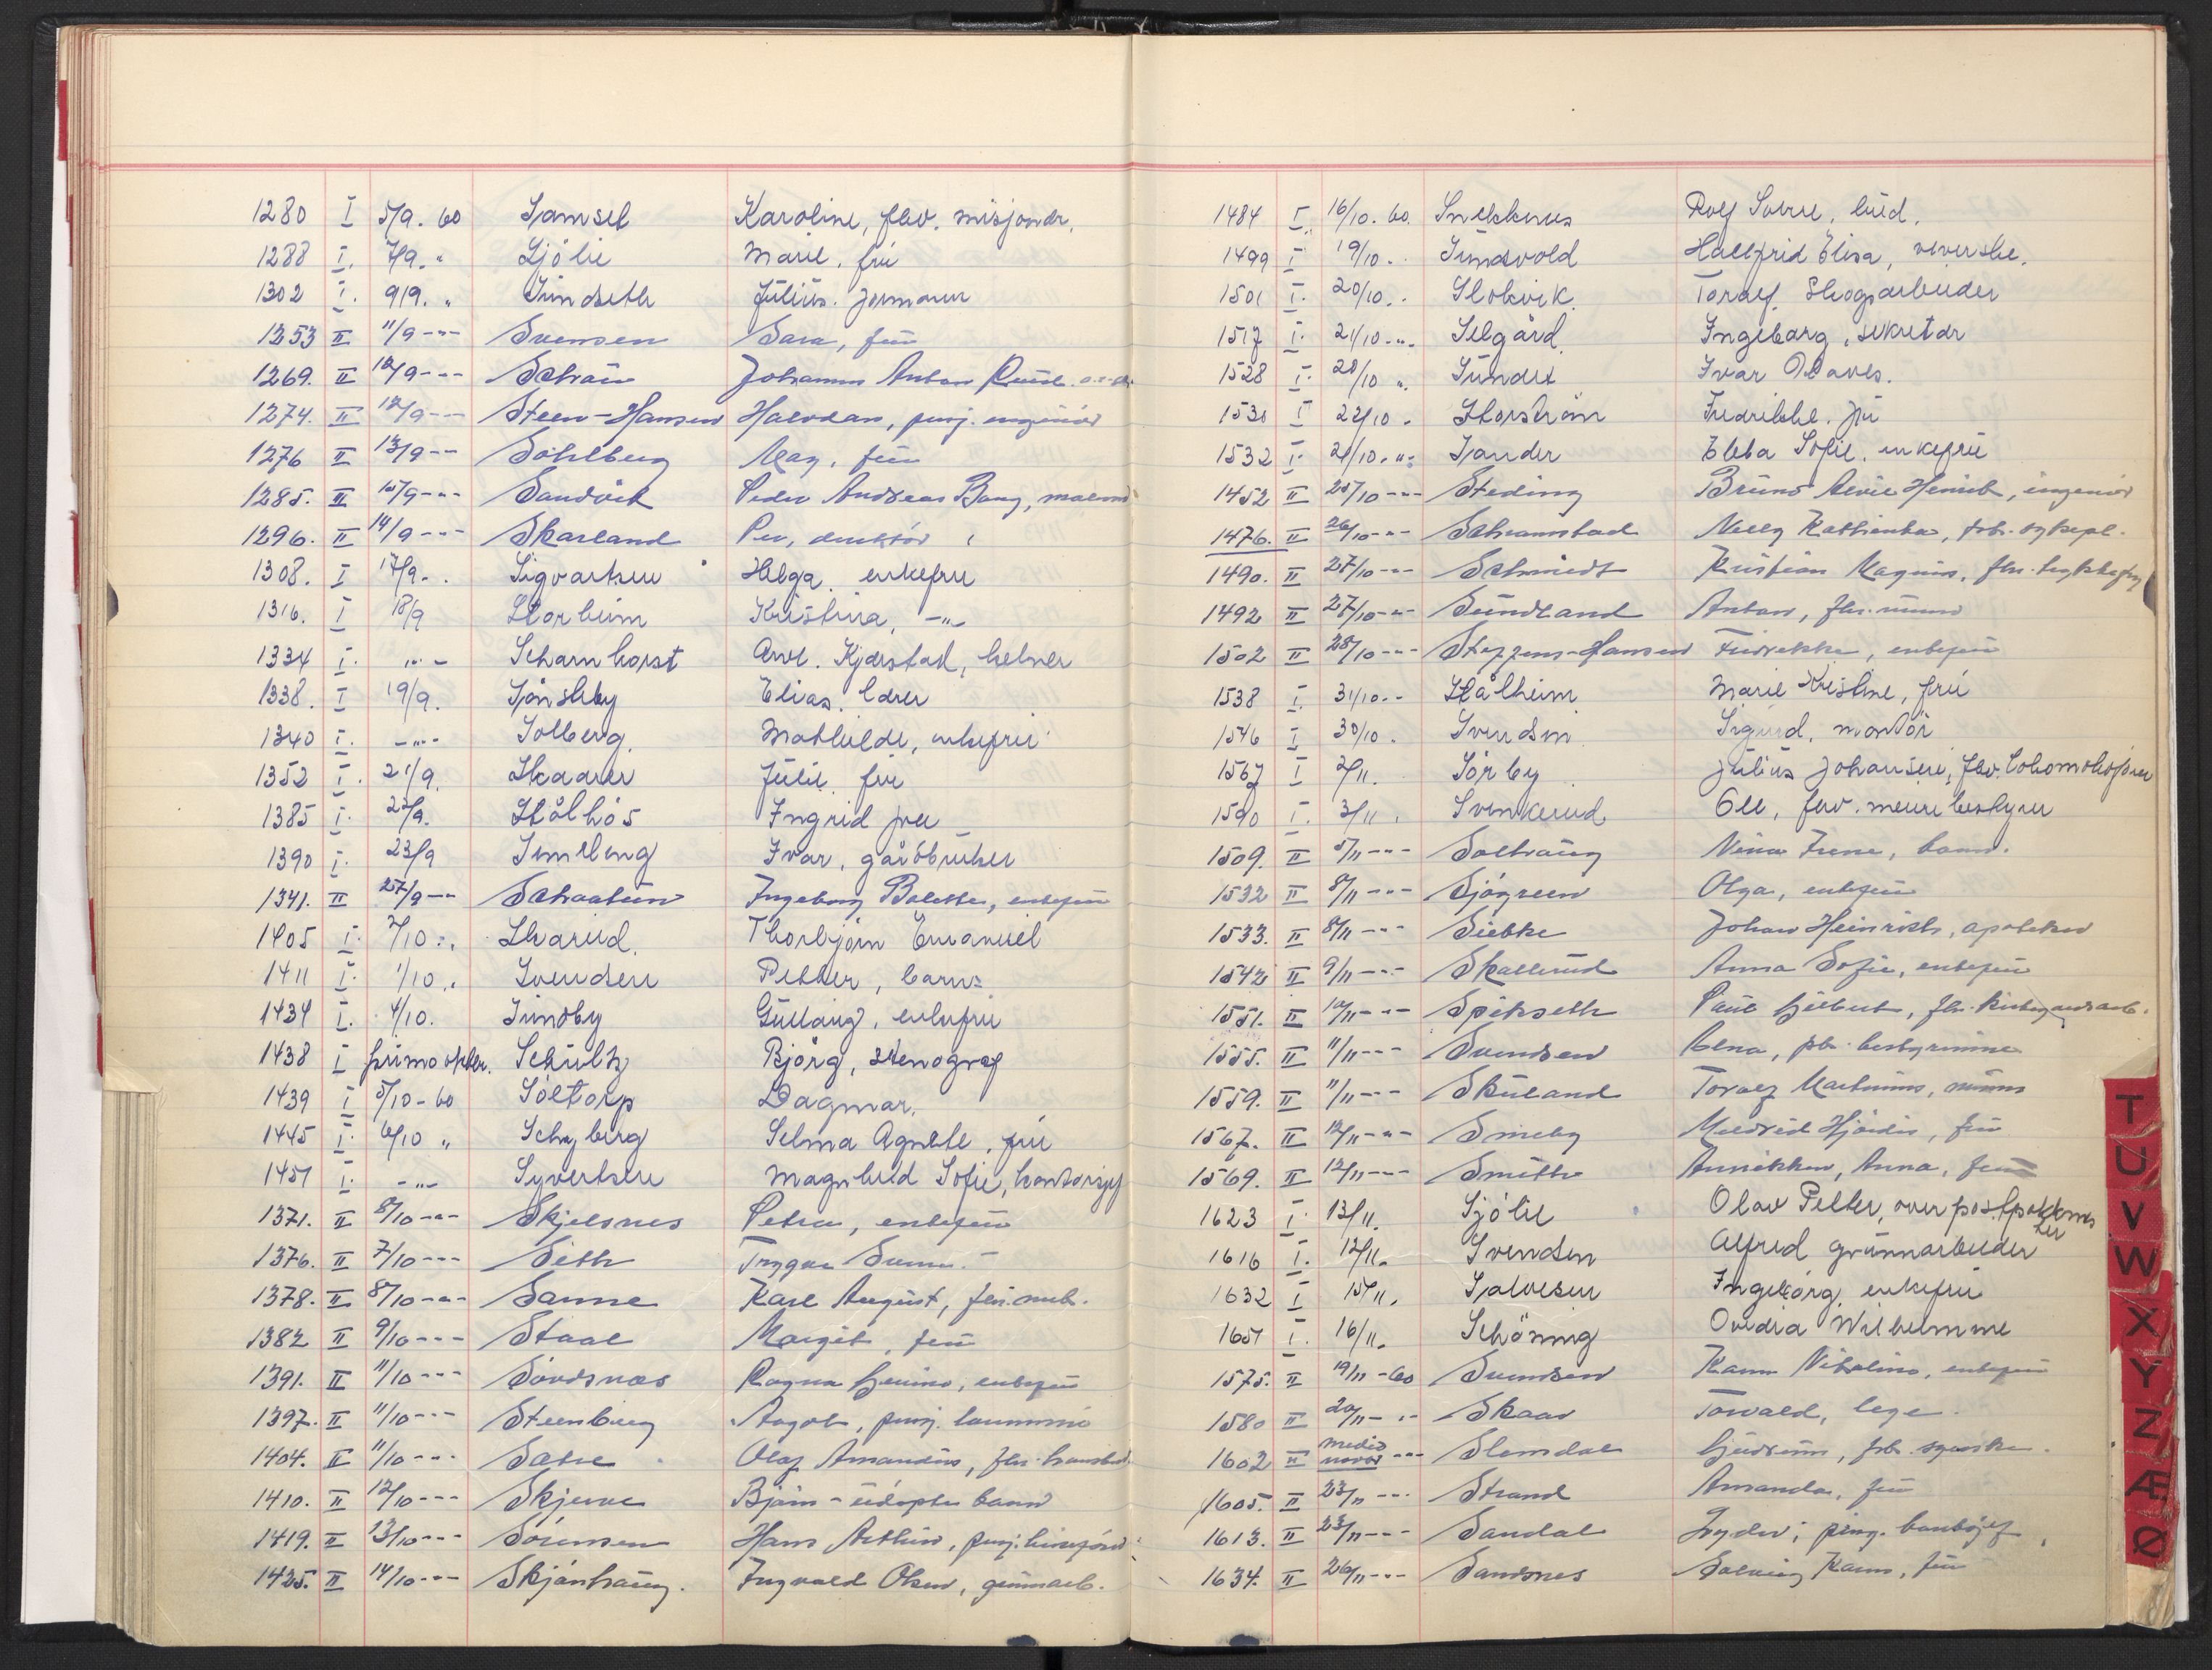 1280 I 5/9. 60 Samset Karoline, fhv. misjonær.
1288 I. 7/9. " Sjølie Marie, frú
1302 I. 9/9. " Sündseth Júlíús. formann
1253 II 11/9 -"- Svensen Sara, frú
1269. II 12/9 -"- Schrøn Johannes Anton
1274. II 12/9 -"- Steen-Hansen Halvdan, pensj. ingeniør
1276 II 13/9 -"- Søhlberg Mag, frú
1285. II 15/9 -"- Sandvik Peder Andreas Bang,
1296. II 14/9 -"- Skarland Per, direktør
1308. I 17/9. . Sigvartsen Helga, enkefru
1316. I 18/9 Storheim Kristina, -"-
1334 I. -"- Scharnhorst Arvl. Kjærstad, kelner
1338. I 19/9. Sønsteby Elias, lærer
1340 I. -"- Solberg. Mathilde, enkefrú
1352 I. 21/9. Skaarer Júlie, frú
1385 I. 22/9. Stølhøs Ingrid frú
1390 I. 23/9 Semeleng Ivar, gårdbrúker
1341. II 25/9 -"- Schaatun Ingeborg Bolette, enkefrú
1405 I. 2/10 ". Skarúd. Thorbjørn Emanúel
1411 I. 1/10 ". Svendsen Petter, barn
1434 I. 4/10. Sündby Gúllaúg, enkefrú
1438 I primo oktbr. Schúltz Bjørg, stenograf
1439 I 5/10 - 60 Søltorp Dagmar.
1445 I. 6/10 " Schyberg Selma Agnete, frú
1451 I. -"- Syvertsen Magnhild Sofie, kontorsjef
1371. II 8/10 -"- Skjelsnes Petra, enkefrú
1376. II 7/10 -"- Seth Trygve
1378. II 8/10 -"- Sanne Karl Aúgúst, fhv.
1382 II 9/10 -"- Staal Margit, frú
1391. II 11/10 -"- Søvdsnæs Ragna, enkefrú
1397. II 11/10 -"- Steenberg Aagot, pensj.
1404. II 11/10 -"- Sætre Olaf Amandús, fhv.
1410. II 12/10 -"- Skjerve Bjørn - údøpte barn
1419. II 13/10 -"- Sørensen Hans Arthúr, pensj.
1425. II 14/10 -"- Skjønhaúg. Ingvald Olsen, grúnnarb.
1484 I. 16/10. 60. Snekkenes Rolf Sverre,
1499 I 19/10 . Sündvold Hallfrid Elisa, veverske.
1501 I. 20/10 . . Slokvik Toralf, Skogsarbeider
1517 I. 21/10 -"- Selgård Ingeborg, sekretær
1528 I. 20/10 ". Súndet Ivar Olaves.
1530 I 22/10 . Storstrøm Fredrikke, frú
1532 I. 21/10 -"- Sander Ebba Sofie, enkefrú
1452 II 25/10 -"- Steding Brúno Henrik, ingeniør
1476. II 26/10 -"- Schramstad Nelly Kathinka, frh. sykepl.
1490. II 27/10 -"- Schmidt Kristian Magnús, fhv.
1492 II 27/10 -"- Súndland Anton, fhv. múrer
1502 II 28/10 -"- Steffens-Hansen Fredrikke, enkefrú
1538 I. 31/10 . - Stålheim Marie Kristine, frú
1546 I 30/10 . Svendsen Sigúrd, montør
1567 I 2/11. Sørby Júliús Johansen, fhv. lokomotivfører
1590 I. 3/11. Svenkerúd Ole, fhv. meieribestyrer
1509. II 5/11 -"- Solhaúg Nina Irene, barn.
1532 II 8/11 -"- Sjøgreen Olga, enkefrú
1533. II 8/11 -"- Siebke Johan Heinrich, apoteker
1542 II 9/11 -"- Skallerúd Anna Sofie, enkefrú
1551. II 10/11 -"- Spikseth Paúl
1555. II 11/11 -"- Svendsen Lena, fhv. bestyrerinne
1559. II 11/11 -"- Skúland Toralf Martiniús, múrer
1567. II 12/11 -"- Smeby Mildrid Hjørdis, frú
1569. II 12/11 -"- Smith Annikken, Anna, frú
1623 I. 13/11. Sjølie Olav Petter, overpostpakkmester
1616 I. 12/11. Svendsen Alfred grúnnarbeider
1632 I 15/11. Salvesen Ingeborg, enkefrú
1651 I. 16/11. Schøning Ovidia Wilhelmine
1575. II 19/11 - 60 Svendsen Karen Nikoline, enkefrú
1580 II 20/11 - " - Skaar Torvald, lege
1602 II medio novbr -"- Slemdal Gúdrún, fhv.
1605. II 23/11 -"- Strand Amanda, frú
1613. II 23/11 -"- Sandal Lyder, pensj. banksjef
1634. II 26/11 -"- Sandsnes Solveig Karen, frú
T
U
V
W
X
Y
Z
Æ
Ø